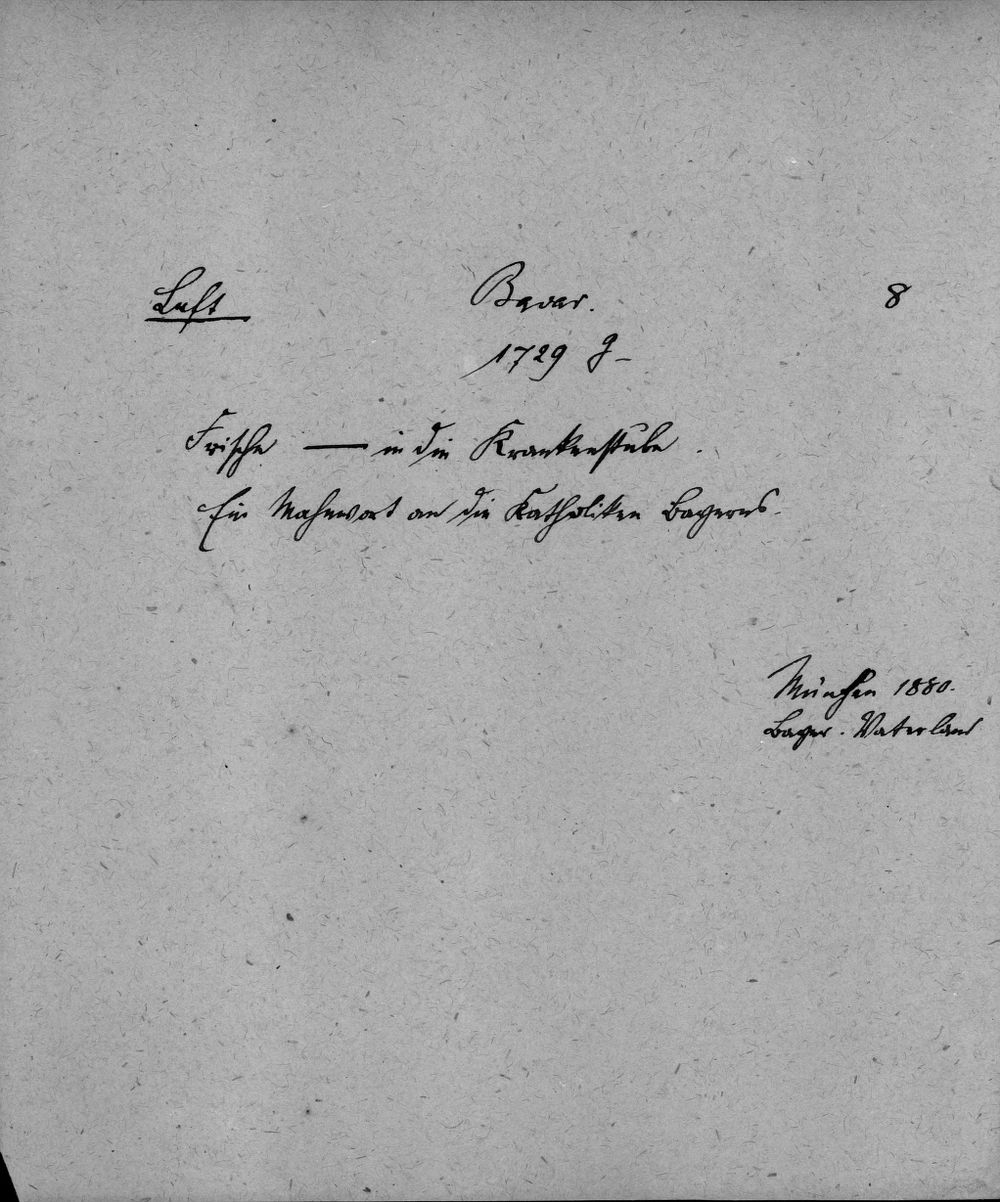 Luft Bavar. 8
1729 g-
Frische — in die Krankenstube.
Ein Mahnwort an die Katholiken Bayerns.
München 1880.
Bayer. Vaterland